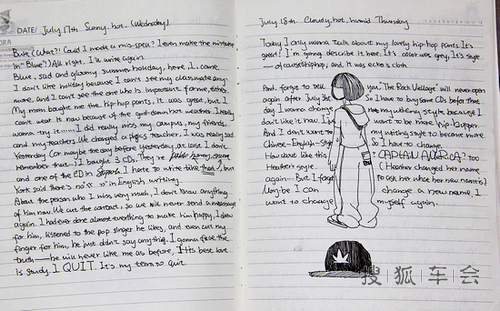 DATE/ July 17th Sunny, hot. (Wednesday)
Bule (What?! Could I made a mis-spea? I even make the mistake
in "Blue"!) All right, I'll write again.
Blue, sad and gloomy summer holiday, here I came.
I don't like holiday because I can't see my classmate any
more, and I can't see the one who is important for me, either.
My mom bought me the hip-hop pants, it was great, but I
can't wear it now because of the god-damn hot weather. I really
wanna try it...... I did really miss my campus, my friends,
and my teachers. We changed a physics teacher, I was really sad
Yesterday (or maybe the day before yesterday, or wait I don't
remember that...) I bought 3 CDs. They're
and one of the CD in I hate to write like that, but
York said there's no in English writing.
About the person who I miss very much, I don't know anything
of him now. We cut the contact, so we will never send a message
again. I had ever done almost everything to make him happy, I draw
for him, listened to the pop singer he likes, and even cut my
finger for him, he just didn't say anything. I gonna face the
truth — he will never like me as before, his best love
is study. I QUIT. It's my turn to quit.
July 18th Cloudy, hot, humid Thursday
Today I only wanna talk about my lovely hip-hop pants. It's
great! I'm wearing it here. It's color was grey, It's style
— of course hip-hop, and it was
And forgo to tell you "The Rock Village" will never open
again after July 31st So I have to buy some CDs before that
day. I wanna change me my writing style because I
don't like it now. I want to be more hip-hopper
And I don't want to my writing style to become more
Chinese-English-Style So I have to change.
How does like this "CAPTAIN AURORA", too
Heather's style (Heather changed her name
again - But I forgot to see her, what her new name is)
Maybe I can change a new name, I
want to change myself again.
搜狐车会